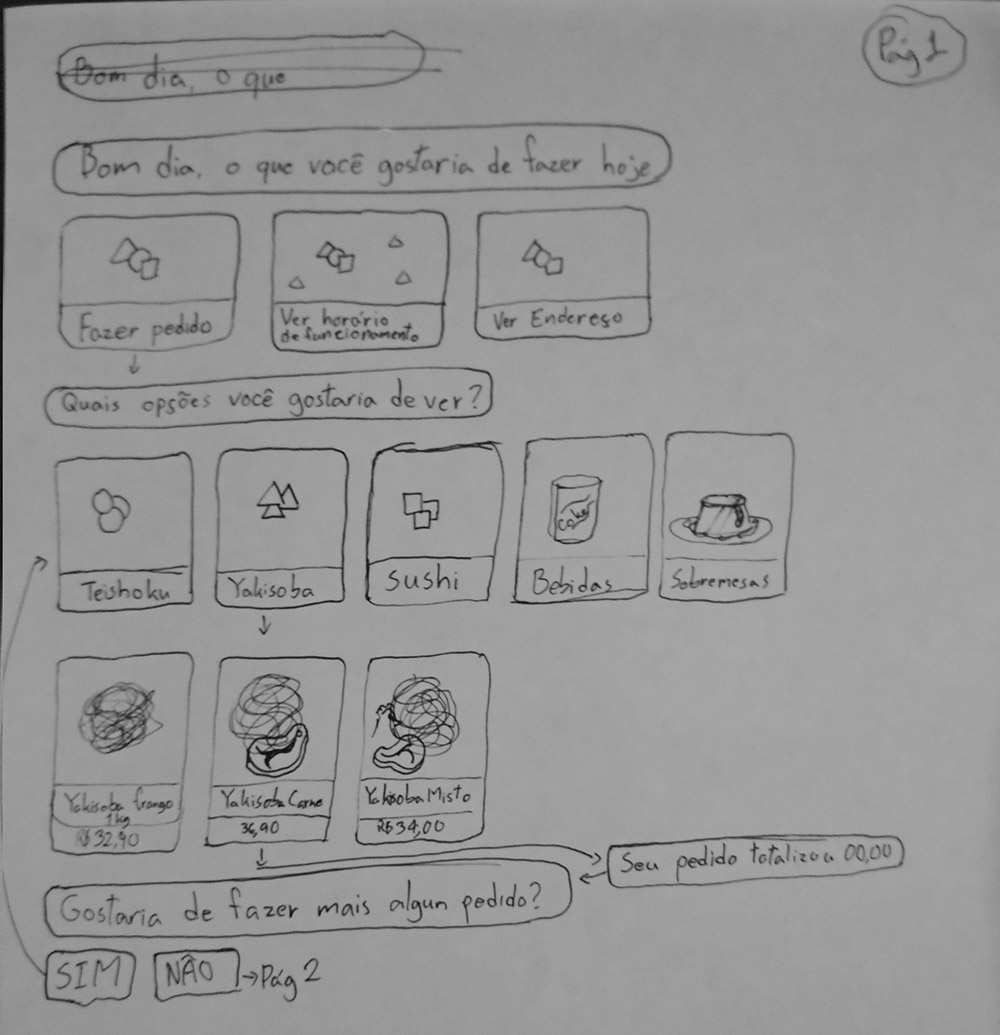 Pág 1
Bom dia, o que
Bom dia, o que você gostaria de fazer hoje
Fazer pedido
Ver horário
de funcionamento
Ver Endereço
Quais opções você gostaria de ver?
Teishoku
Yakisoba
Sushi
Coke
Bebidas
Sobremesas
Yakisoba frango
1kg
R$32,90
Yakisoba Carne
36,90
Yakisoba Misto
R$34,00
Seu pedido totalizou 00,00
Gostaria de fazer mais algun pedido?
SIM
NÃO → Pág 2